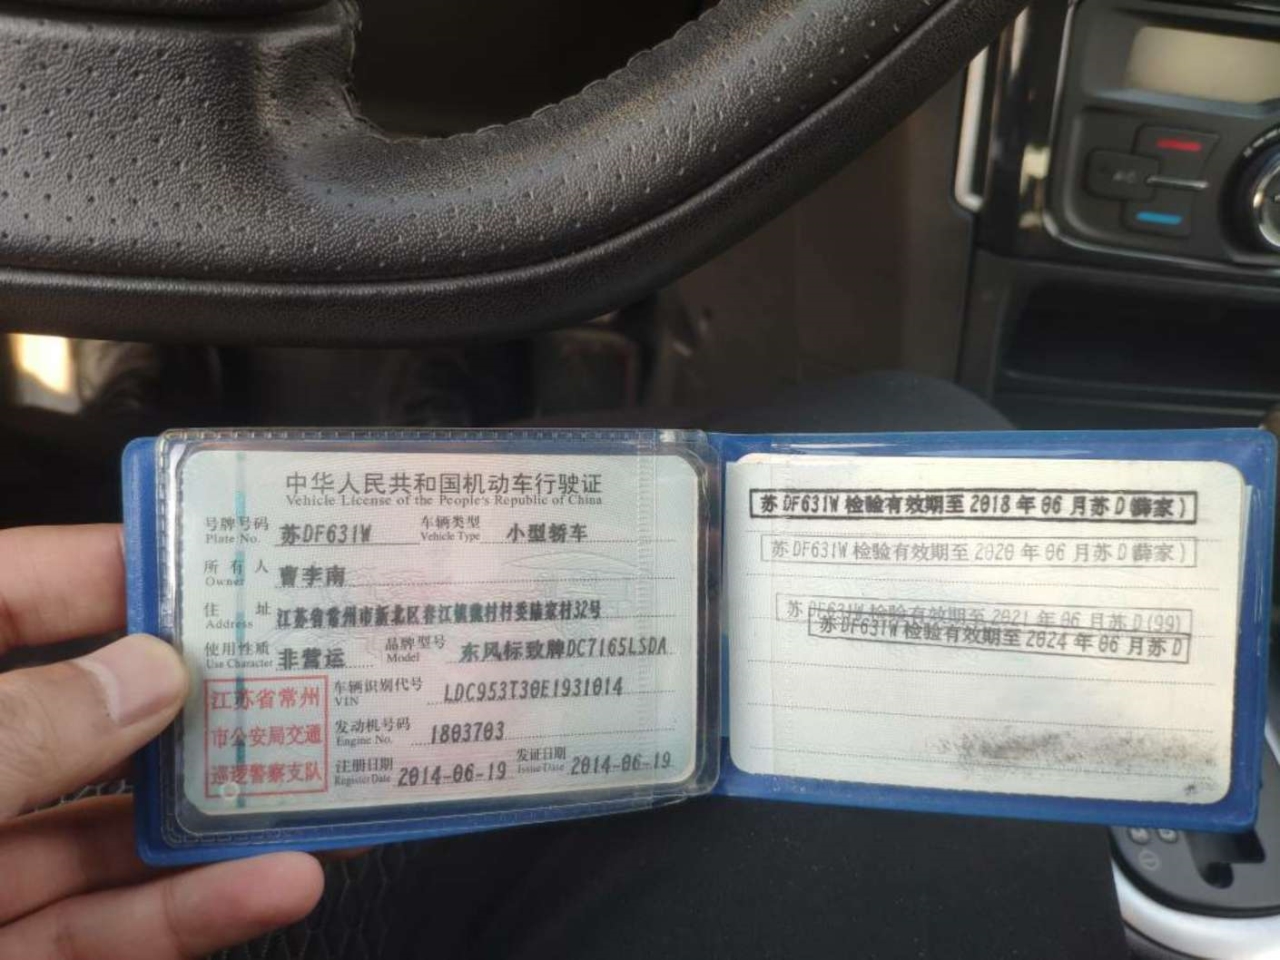 中华人民共和国机动车行驶证
Vehicle License of the People's Republic of China
号牌号码 苏DF631W 车辆类型 小型轿车
Plate No. Vehicle Type
所有人 曹李南
Owner
住址 江苏省常州市新北区春江镇魏村村委陆家村32号
Address
使用性质 非营运 品牌型号 东风标致牌DC7165LSDA
Use Character Model
江苏省常州
市公安局交通
巡逻警察支队
车辆识别代号 LDC953T30E1931014
VIN
发动机号码 1803703
Engine No.
注册日期 2014-06-19 发证日期 2014-06-19
Register Date Issue Date
苏DF631W检验有效期至2018年06月苏D(薛家)
苏DF631W检验有效期至2020年06月苏D(薛家)
苏DF631W检验有效期至2021年06月苏D(99)
苏DF631W检验有效期至2024年06月苏D